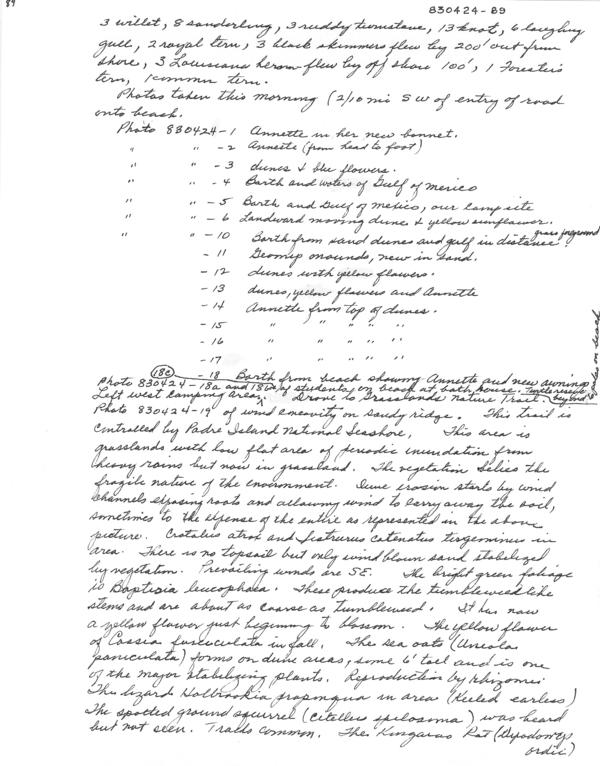 89
830424-89
3 willet, 8 sanderling, 3 ruddy turnstone, 13 knot, 6 laughing
gull, 2 royal tern, 3 black skimmers flew by 200' out from
shore, 3 Louisiana heron flew by off shore 100', 1 Forster's
tern, 1 common tern.
Photos taken this morning (2/10 mi SW of entry of road
onto beach.
Photo 830424-1 Annette in her new bonnet.
" " -2 Annette (from head to foot)
" " -3 dunes & blue flowers.
" " -4 Barth and waters of Gulf of Mexico
" " -5 Barth and Gulf of Mexico, our camp site
" " -6 Landward moving dune & yellow sunflower.
" " -10 Barth from sand dunes and gulf in distance. grass foreground
-11 Geomys mounds, new in sand.
-12 dunes with yellow flowers.
-13 dunes, yellow flowers and Annette
-14 Annette from top of dunes.
-15 " " " " "
-16 " " " " "
-17 " " " " "
18c -18 Barth from beach showing Annette and new awning
Photo 830424-18a and 18b of students on beach at bath house. Turtle rescue
Left west camping area. Drove to Grasslands Nature Trail. beyond
Photo 830424-19 of wind concavity on sandy ridge. This trail is
controlled by Padre Island National Seashore. This area is
grasslands with low flat area of periodic inundation from
heavy rains but now in grassland. The vegetation belies the
fragile nature of the environment. Dune erosion starts by wind
channels exposing roots and allowing wind to carry away the soil,
sometimes to the expense of the entire as represented in the above
picture. Crotalus atrox and Sistrurus catenatus tergeminus in
area. There is no topsoil but only wind blown sand stabilized
by vegetation. Prevailing winds are SE. The bright green foliage
is Baptisia leucophaea. These produce the tumbleweed like
stems and are about as coarse as tumbleweed. It has now
a yellow flower just beginning to blossom. The yellow flower
of Cassia fasciculata in fall. The sea oats (Uniola
paniculata) forms on dune areas, some 6' tall and is one
of the major stabilizing plants. Reproduction by rhizomes.
The lizard Holbrookia propinqua in area (Keeled earless)
The spotted ground squirrel (Citellus spilosoma) was heard
but not seen. Tracks common. The Kangaroo Rat (Dipodomys
ordii)